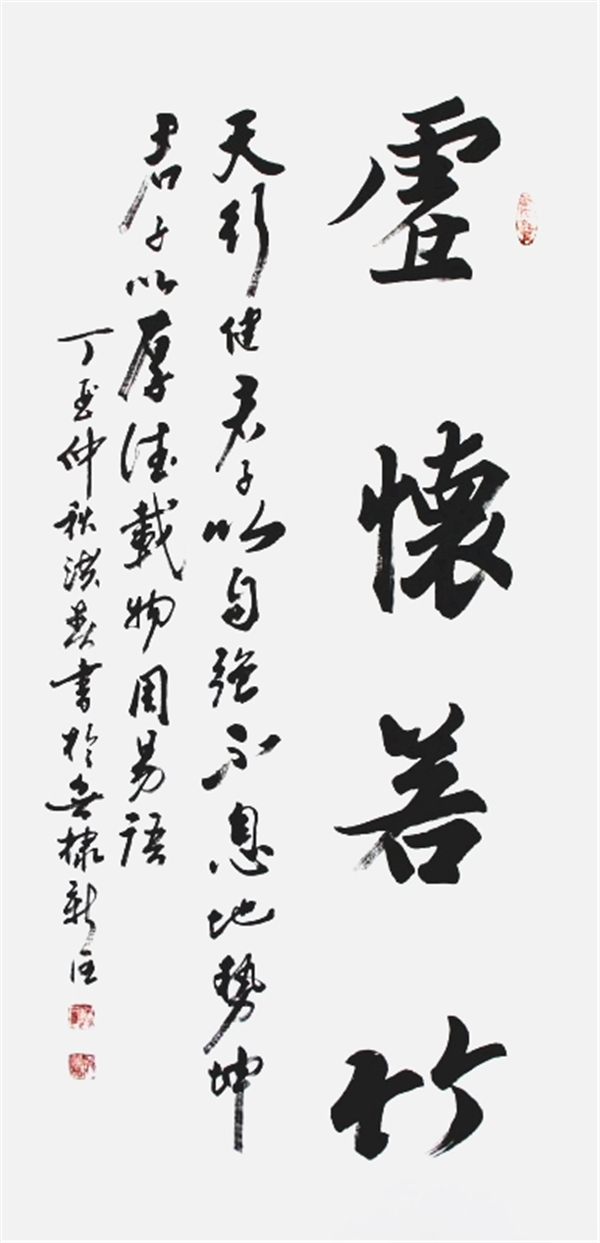 虚懷若竹
天行健君子以自強不息地勢坤
君子以厚德載物周易語
丁酉仲秋洪書於無棣新